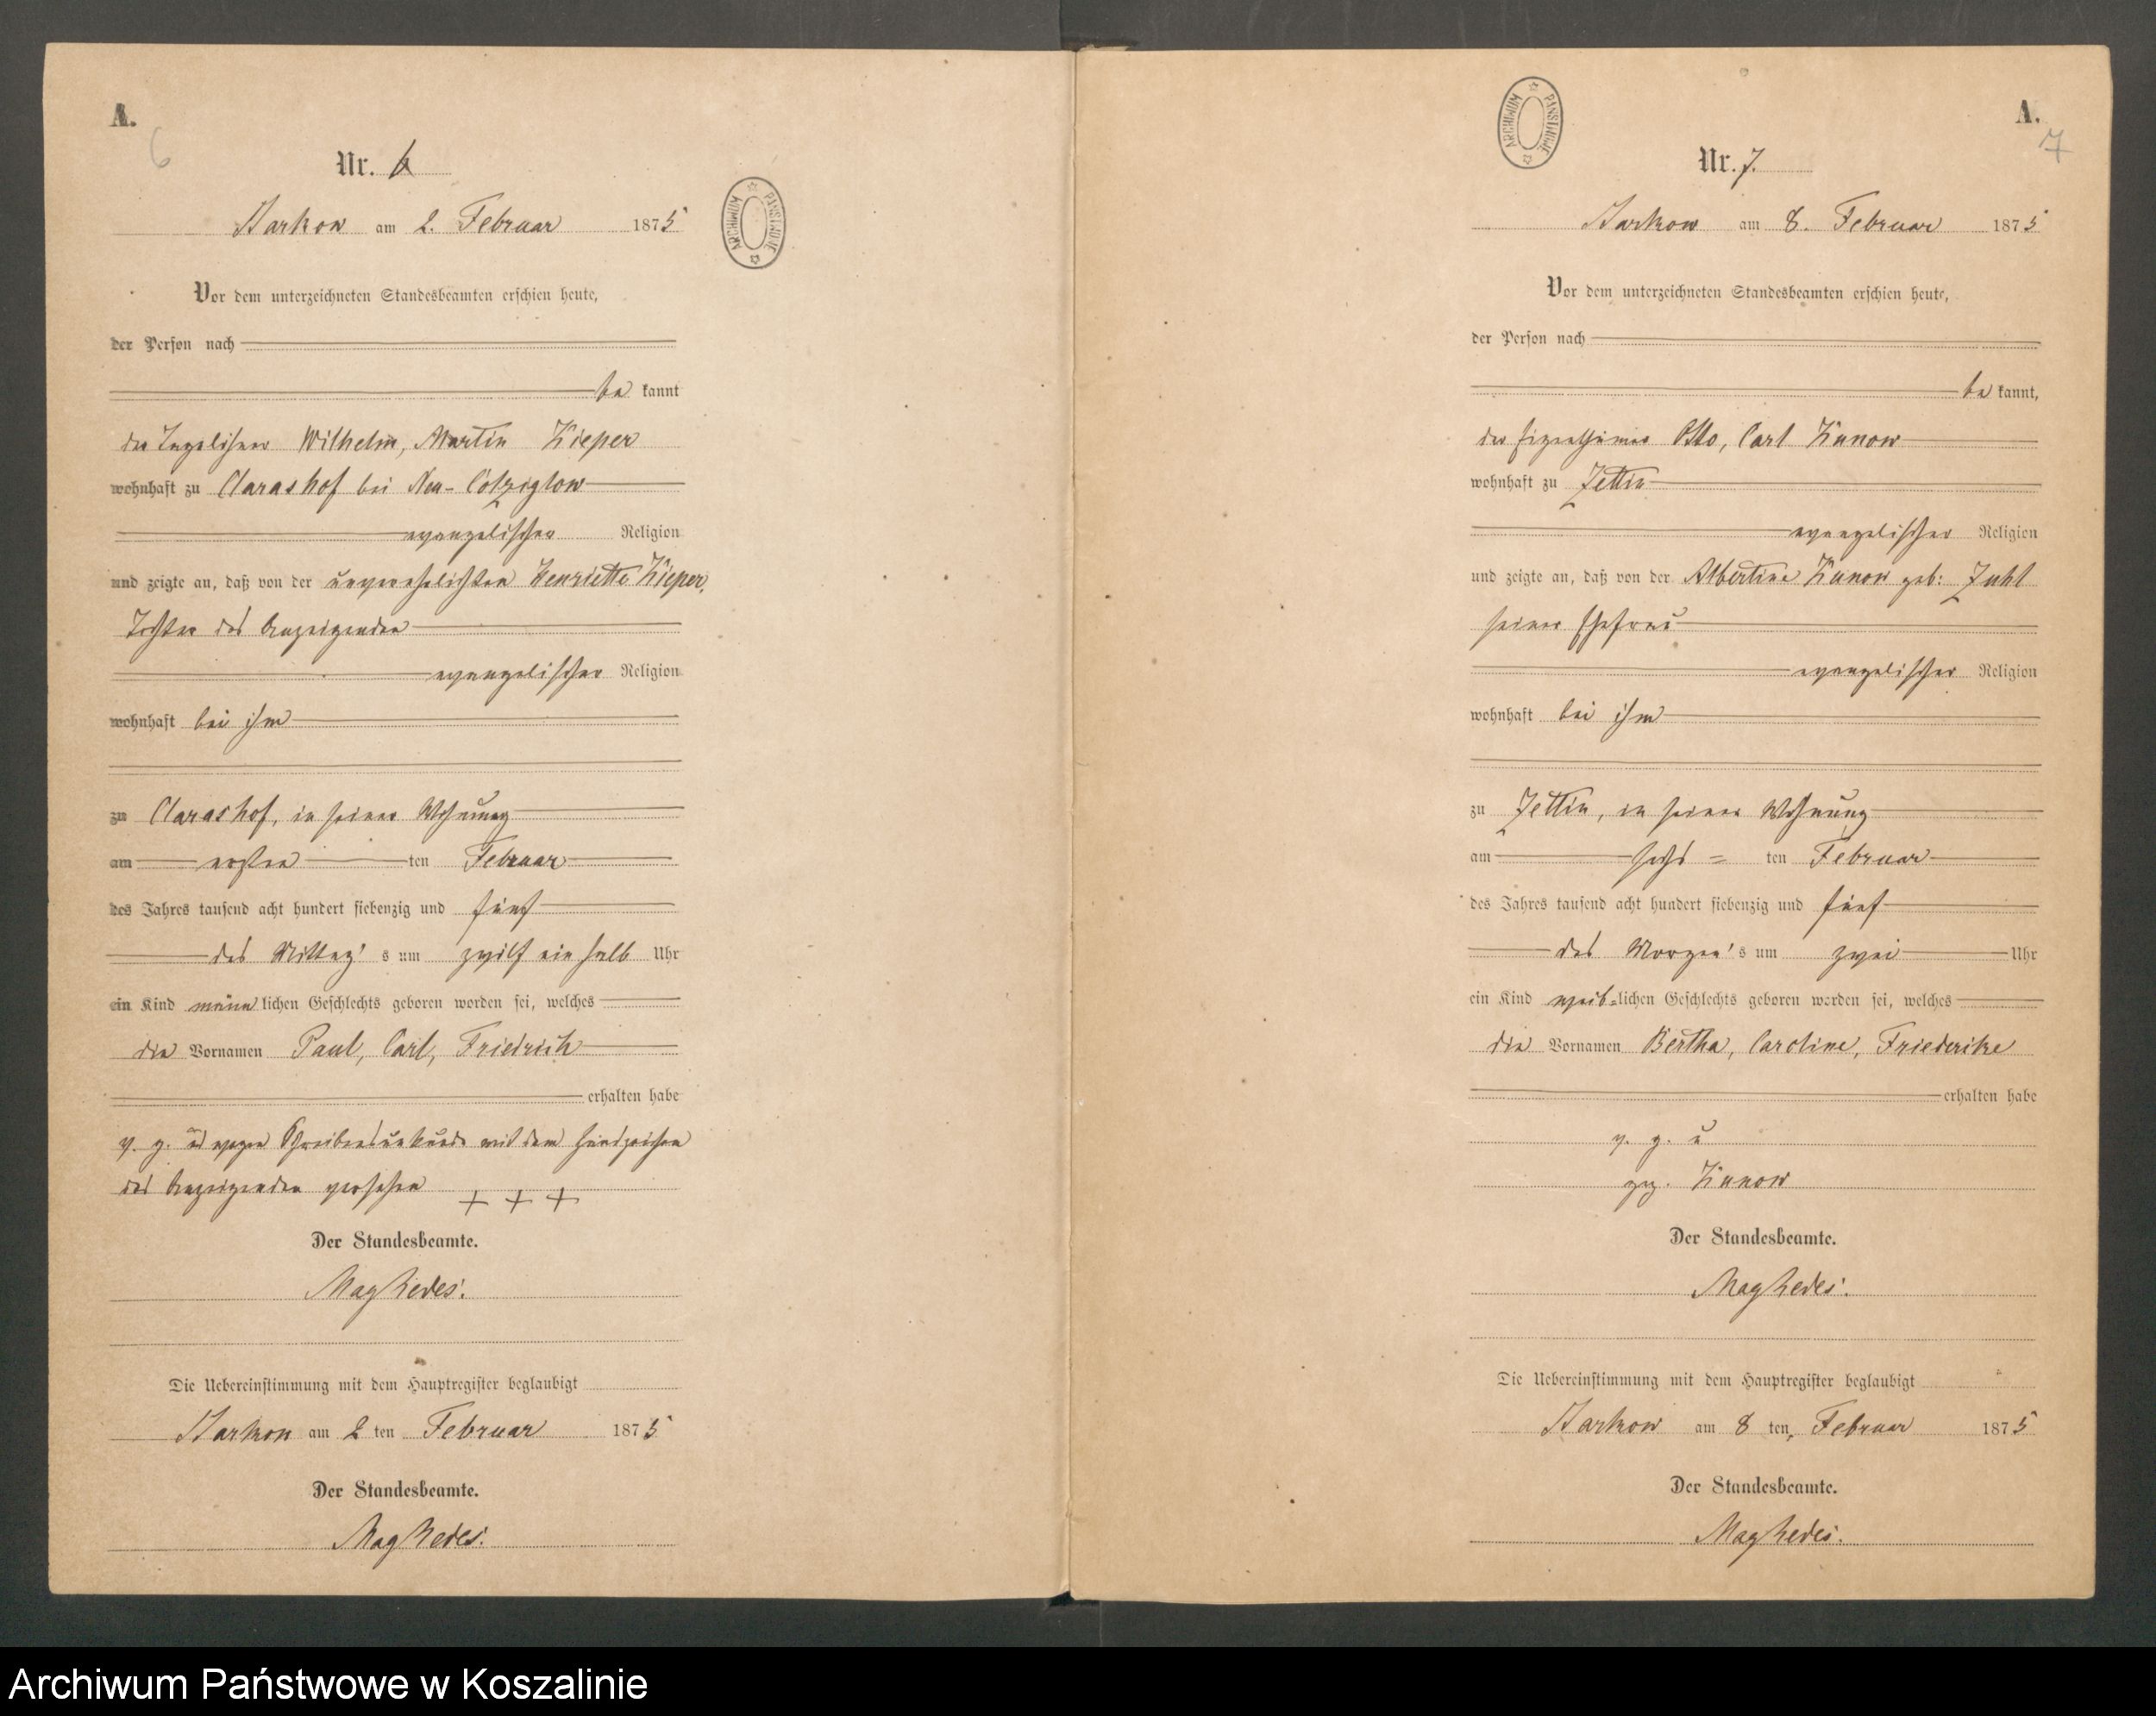 A.
6
Nr. 6
Starkow am 2. Februar 1875
ARCHIWUM PAŃSTWOWE
Vor dem unterzeichneten Standesbeamten erschien heute,
der Person nach
be kannt
der Tagelöhner Wilhelm, Martin Kieper
wohnhaft zu Clarashof bei Neu-Colziglow
evangelischer Religion
und zeigte an, daß von der unverehelichten Henriette Kieper,
Tochter des Anzeigenden
evangelischer Religion
wohnhaft bei ihm
zu Clarashof, in seiner Wohnung
am ersten ten Februar
des Jahres tausend acht hundert siebenzig und fünf
des Mittag's um zwölf ein halb Uhr
ein Kind männlichen Geschlechts geboren worden sei, welches
die Vornamen Paul, Carl, Friedrich
erhalten habe
v. g. und wegen Schreibensunkunde mit dem Handzeichen
des Anzeigenden versehen + + +
Der Standesbeamte.
Der Uebereinstimmung mit dem Hauptregister beglaubigt
Starkow am 2 ten Februar 1875
Der Standesbeamte.
ARCHIWUM PAŃSTWOWE
A.
7
Nr. 7.
Starkow am 8. Februar 1875
Vor dem unterzeichneten Standesbeamten erschien heute,
der Person nach
be kannt,
der Eigenthümer Otto, Carl Kunow
wohnhaft zu Zettin
evangelischer Religion
und zeigte an, daß von der Albertine Kunow geb: Zuhl
seiner Ehefrau
evangelischer Religion
wohnhaft bei ihm
zu Zettin, in seiner Wohnung
am sechs = ten Februar
des Jahres tausend acht hundert siebenzig und fünf
des Morgen's um zwei Uhr
ein Kind weib=lichen Geschlechts geboren worden sei, welches
die Vornamen Bertha, Caroline, Friederike
erhalten habe
v. g. u
gez. Kunow
Der Standesbeamte.
Die Uebereinstimmung mit dem Hauptregister beglaubigt
Starkow am 8 ten Februar 1875
Der Standesbeamte.
Archiwum Państwowe w Koszalinie